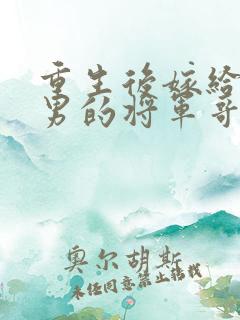 重生后嫁给
男的将军哥
奥尔胡斯
未经同意禁止转载